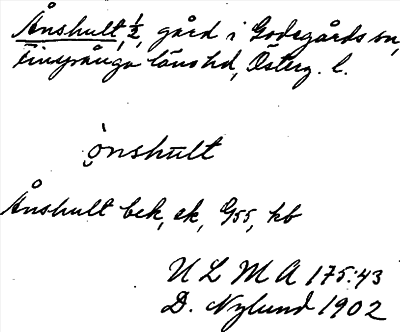 Ånshult, ½, gård i Godegårds sn,
Finspånga läns hd, Österg. l.
ò̬nshult
Ånshult bek, ek, G55, kb
U L M A 175:43
D. Nylund 1902